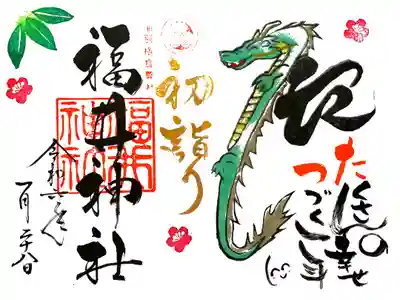 たくさんの幸せ
つづく一年
初詣り
旧別格官幣社
福井神社
福井神社
令和六
一月